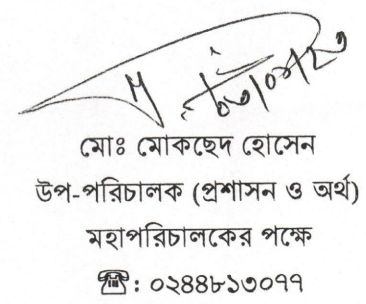 মোঃ মোকছেদ হোসেন
উপ-পরিচালক (প্রশাসন ও অর্থ)
মহাপরিচালকের পক্ষে
☎: ০২৪৪৮১৩০৭৭